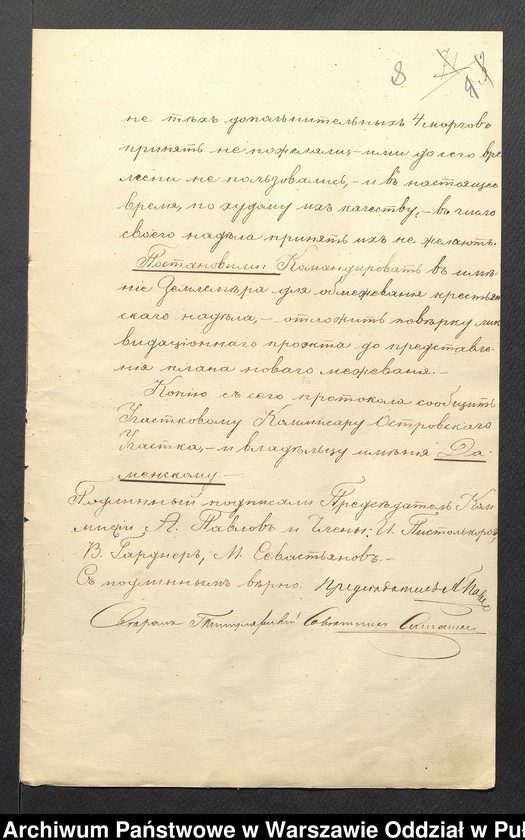 8
не тѣхъ дополнительныхъ 4 морговъ
принять не пожелали, - ими до сего вре
мени не пользовались, - и въ настоящее
время, по худому ихъ качеству, - въ число
своего надѣла принять ихъ не желаютъ.
Постановили: Командировать въ имѣ
ніе Землемѣра для обмежеванія крестьян
скаго надѣла, - отложить повѣрку лик
видаціоннаго проэкта до представле-
нія плана новаго межеванія. -
Копію съ сего протокола сообщить
Участковому Коммисару Островскаго
Участка, - и владѣльцу имѣнія До-
менскому. -
Подлинный подписали Предсѣдатель Ком
мисіи А. Павловъ и Члены: И. Пистолькорсъ,
В. Гарднеръ, М. Севастьяновъ. -
Съ подлиннымъ вѣрно. Предсѣдатель А. Павло
Секретарь Титулярный Совѣтникъ
Archiwum Państwowe w Warszawie Oddział w Puł